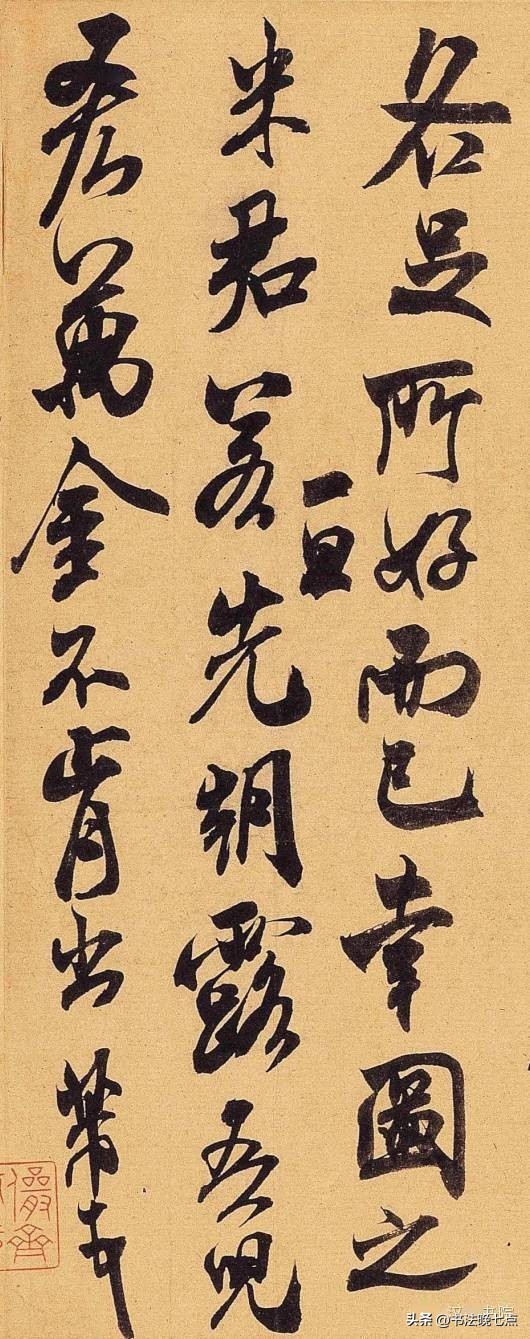 各足所好而已幸圖之
米君若一旦先朝露吾兒
吝萬金不肯出 芾
儼齋
头条 @书法晚七点